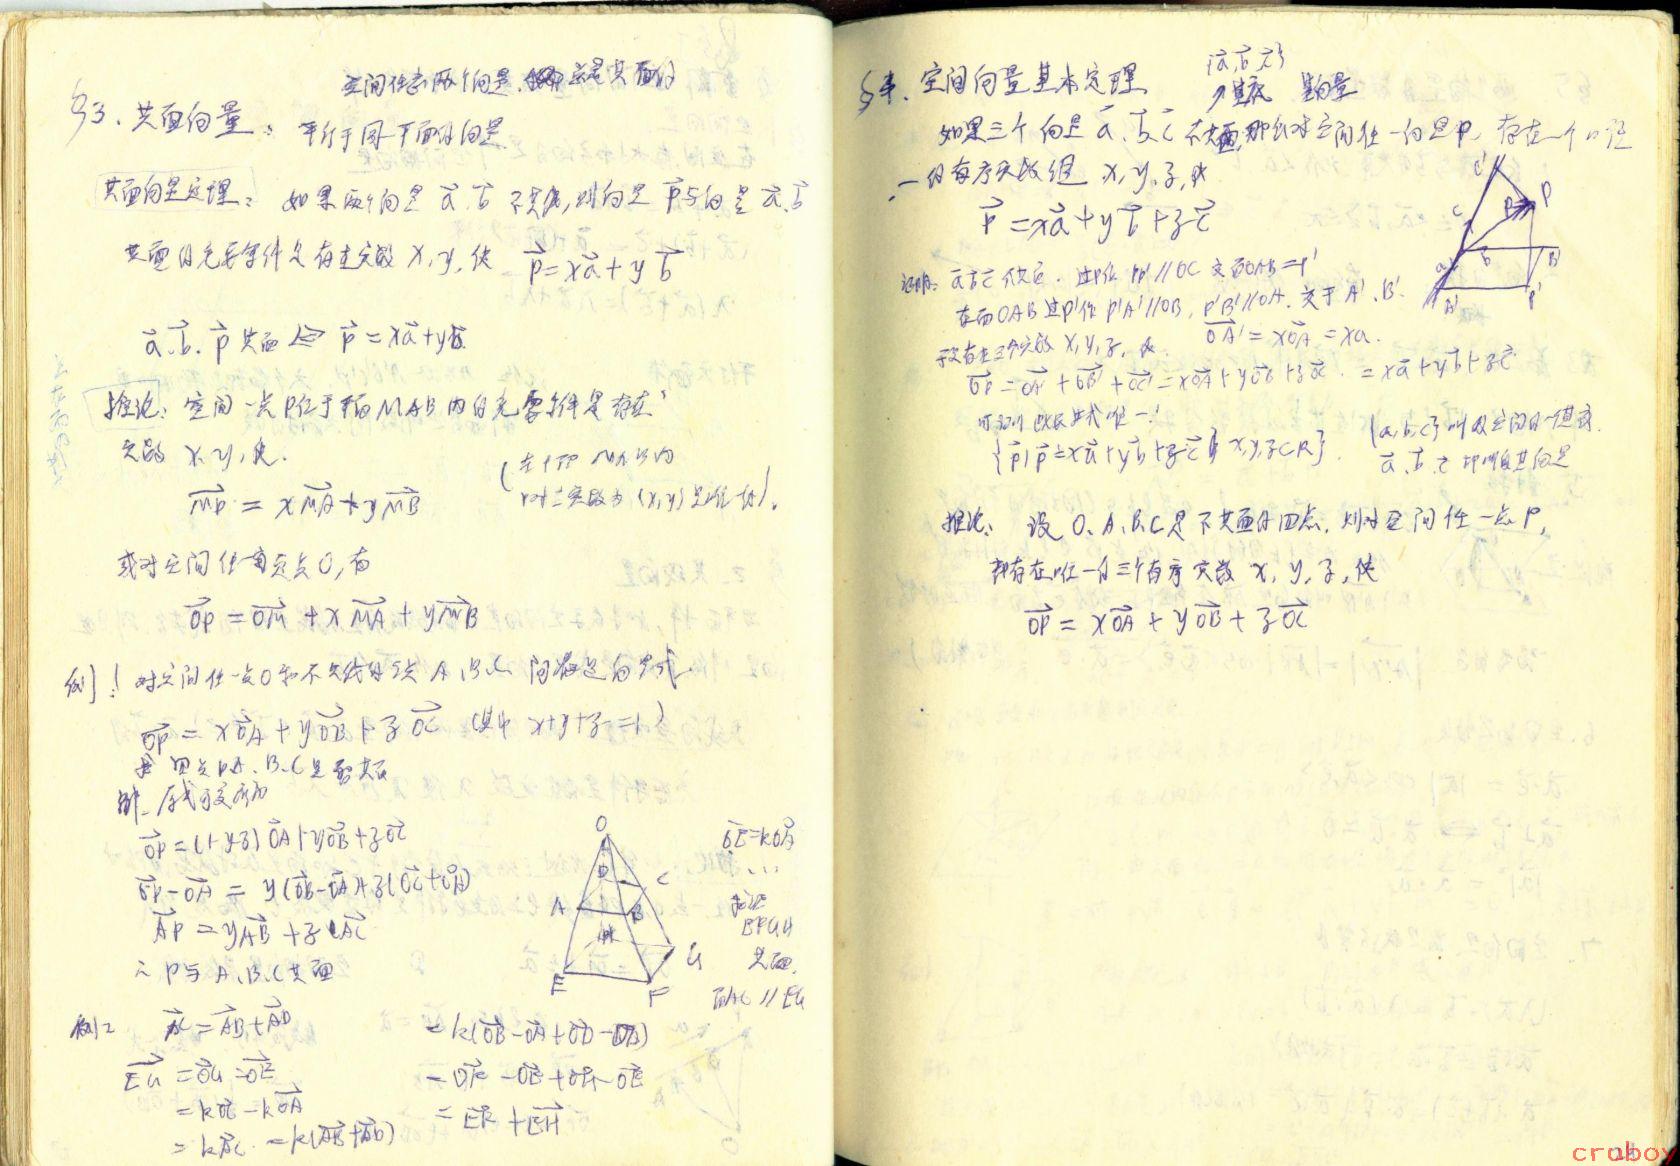 空间任意两个向量 总是共面的
§3. 共面向量: 平行于同一平面的向量
共面向量定理: 如果两个向量 a⃗. b⃗ 不共线, 则向量 p⃗ 与向量 a⃗. b⃗
共面的充要条件是存在实数 x, y, 使 p⃗ = xa⃗ + yb⃗
a⃗. b⃗. p⃗ 共面 ⇔ p⃗ = xa⃗ + yb⃗
推论: 空间一点P位于平面MAB内的充要条件是存在
实数 x, y, 使.
MP⃗ = xMA⃗ + yMB⃗
(在平面 MAB内
实数对 (x, y) 是唯一的).
或对空间任意定点O, 有
OP⃗ = OM⃗ + xMA⃗ + yMB⃗
例1 对空间任一点O和不共线的三点 A, B, C 向量关系式
OP⃗ = xOA⃗ + yOB⃗ + zOC⃗ (其中 x+y+z=1)
四点P.A.B.C是否共面
解. 原式可变为
OP⃗ = (1-y-z)OA⃗ + yOB⃗ + zOC⃗
OP⃗ - OA⃗ = y(OB⃗-OA⃗) + z(OC⃗+OA⃗)
AP⃗ = yAB⃗ + zAC⃗
∴ P与 A.B.C共面
O
D C
A B
H G
E F
OE⃗=kOA⃗
...
求证
EFGH
共面.
面AC // EG
例2 AC⃗ = AB⃗ + AD⃗
EG⃗ = OG⃗ - OE⃗
= kOC⃗ - kOA⃗
= kAC⃗ = k(AB⃗+AD⃗)
= k(OB⃗-OA⃗+OD⃗-OA⃗)
= OF⃗ - OE⃗ + OH⃗ - OE⃗
= EF⃗ + EH⃗
§4. 空间向量基本定理
{a⃗, b⃗, c⃗}
基底 基向量
如果三个向量 a⃗. b⃗. c⃗ 不共面, 那么对空间任一向量p⃗, 存在一个唯
一的有序实数组 x, y, z, 使
p⃗ = xa⃗ + yb⃗ + zc⃗
C'
P
C
b
a
B'
A'
P'
证明: 过P作 PP' // OC 交面OAB = P'
在面OAB 过P'作 P'A' // OB, P'B' // OA. 交于 A'. B'.
存在三个实数 x, y, z, 使. OA'⃗ = xOA⃗ = xa.
OP⃗ = OA'⃗ + OB'⃗ + OC'⃗ = xOA⃗ + yOB⃗ + zOC⃗ = xa⃗ + yb⃗ + zc⃗
{p⃗|p⃗ = xa⃗ + yb⃗ + zc⃗ x,y,z∈R}.
{a, b, c} 叫做空间的一个基底.
a⃗. b⃗. c⃗ 叫做基向量
推论: 设 O, A, B, C是不共面的四点, 则对空间任一点P,
都存在唯一的三个有序实数 x, y, z, 使
OP⃗ = xOA⃗ + yOB⃗ + zOC⃗
cruboy